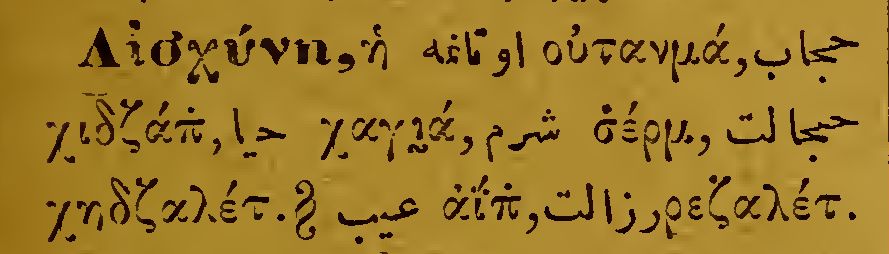 Αἰσχύνη, ἡ اوتانمه οὐτανμά, حجاب
χιδζάπ̇, حيا χαγιά, شرم σ̇έρμ, حجالت
χηδζαλέτ. عيب ἀΐπ̇, رزالت ρεζαλέτ.